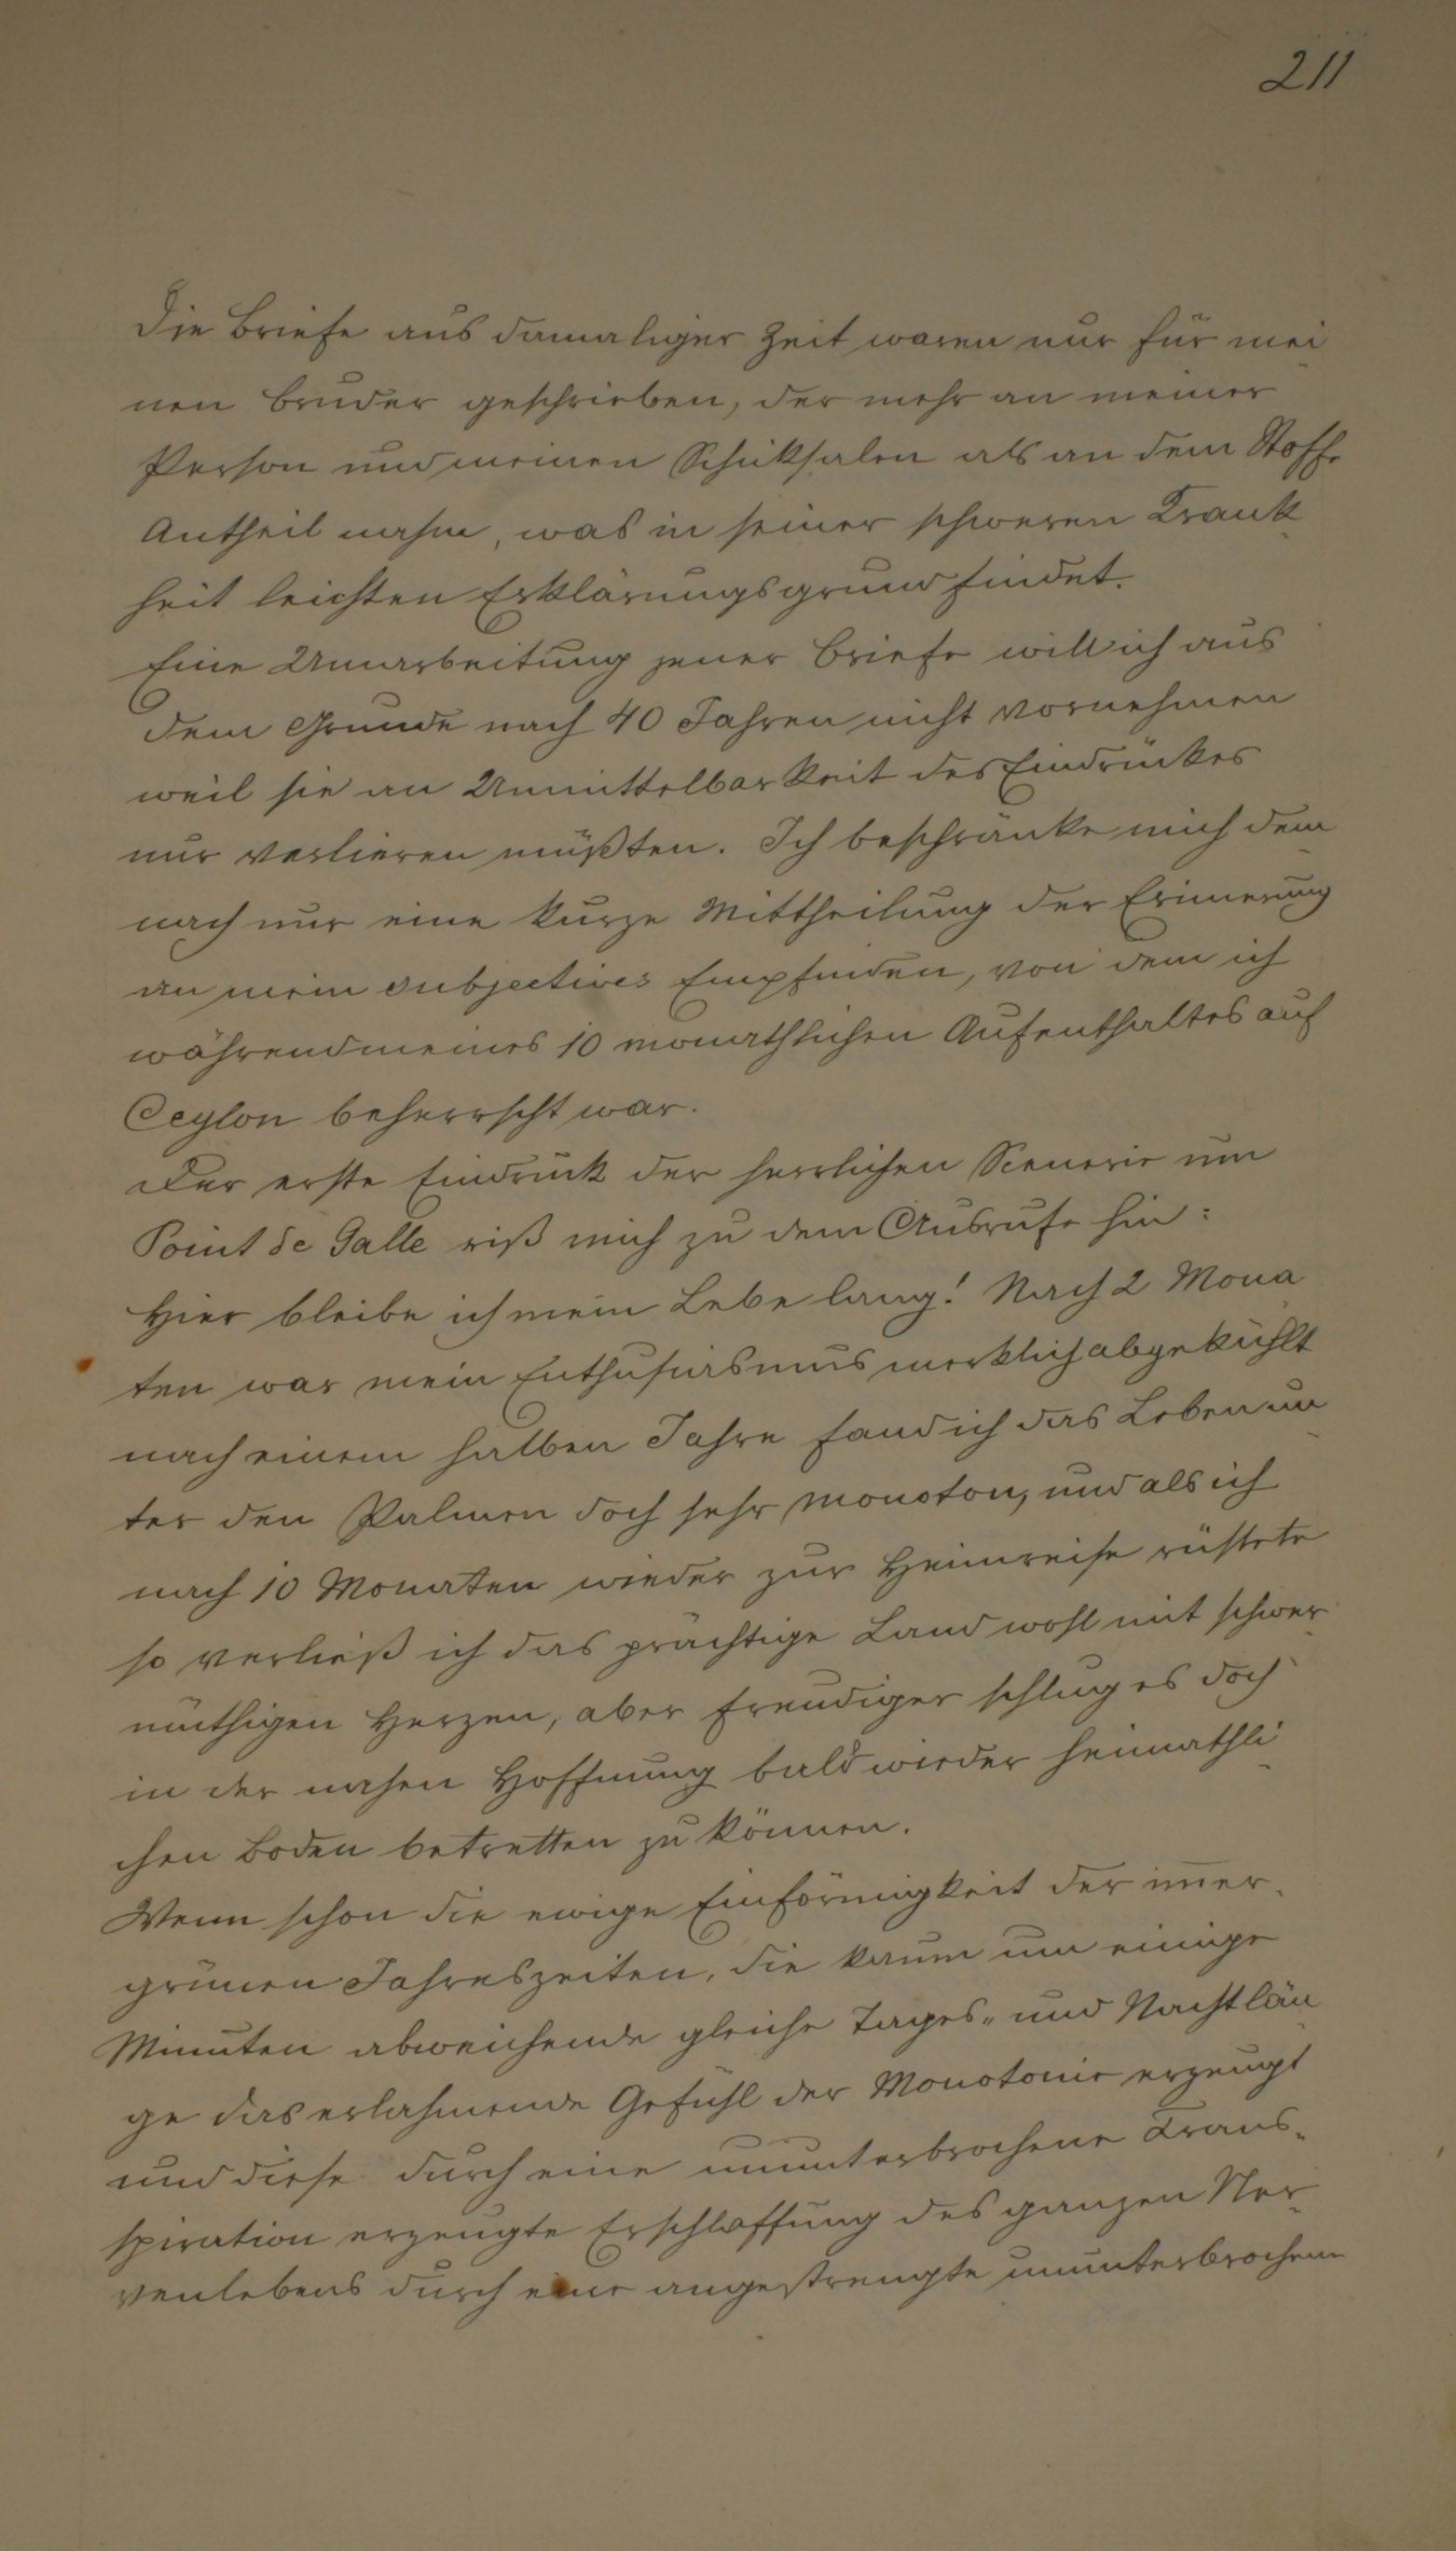 211
Die Briefe aus damaliger Zeit waren nur für mei
nen Bruder geschrieben, der mehr an meiner
Person und meinen Schicksalen als an dem Stoffe
Antheil nahm, was in seiner schweren Krank
heit leichten Erklärungsgrund findet.
Eine Umarbeitung jener Briefe will ich aus
dem Grunde nach 40 Jahren nicht vornehmen
weil sie an Unmittelbarkeit des Eindruckes
nur verlieren müßten. Ich beschränke mich dem
nach nur eine kurze Mittheilung der Erinnerung
an mein subjectives Empfinden, von dem ich
während meines 10 monathlichen Aufenthaltes auf
Ceylon beherrscht war.
Der erste Eindruck der herrlichen Scenerie um
Point de Galle riß mich zu dem Ausrufe hin:
Hier bleibe ich mein Lebe lang! Nach 2 Mona
ten war mein Enthusiasmus merklich abgekühlt
nach einem halben Jahre fand ich das Leben un
ter den Palmen doch sehr monoton, und als ich
nach 10 Monaten wieder zur Heimreise rüstete
so verließ ich das prächtige Land wohl mit schwer
müthigen Herzen, aber freudiger schlug es doch
in der nahen Hoffnung bald wieder heimathli
chen Boden betretten zu können.
Wenn schon die ewige Einförmigkeit der im̄er-
grünen Jahreszeiten, die kaum um einige
Minuten abweichende gleiche Tages- und Nachtlän
ge das erlahmende Gefühl der Monotonie erzeugt
und diese durch eine ununterbrochene Trans-
spiration erzeugte Erschlaffung des ganzen Ner
venlebens durch eine angestrengte ununterbrochene